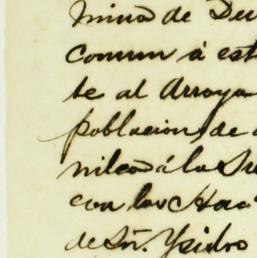 minos de Des
comun á est
te al Arroyo
poblacion, de
á la Su
con las Haci
de Sñ. Ysidro